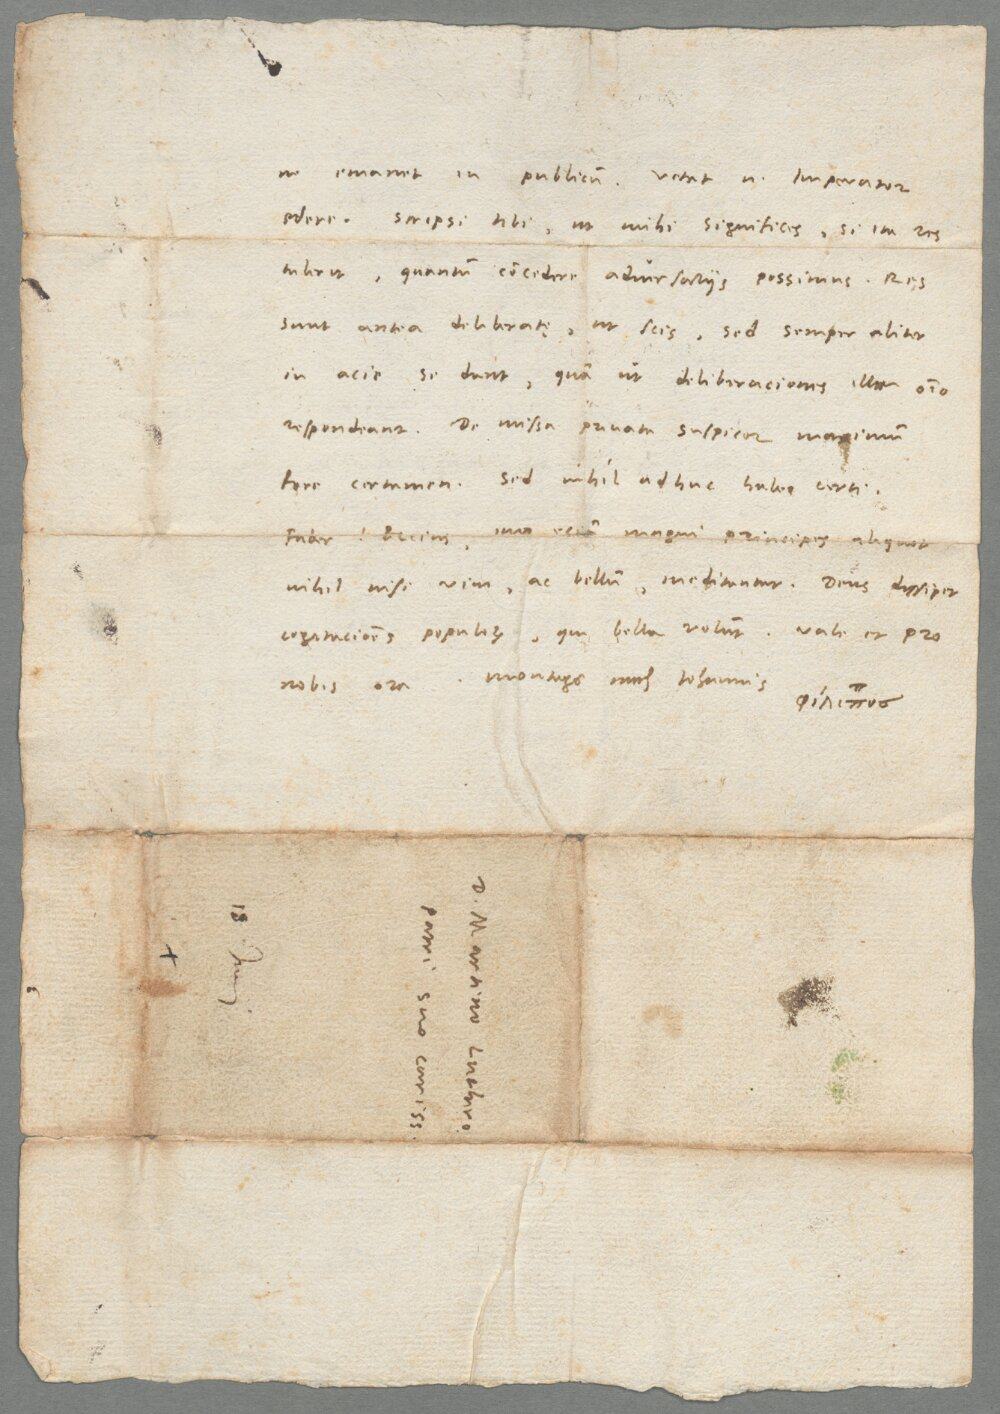 ne emanet in publicū. vetat n. Imperator
edere. Scripsi tibi, ut mihi significes, si ita res
tulerit, quantū cōcedere adversarijs possimus. Res
sunt antea deliberatę, ut scis, sed semper aliter
in acie se dant, quā ut deliberaciones illae oīo
respondeant. De missa privata suspicor maximū
fore certamen. Sed nihil adhuc habeo certi.
Faber, Eccius, imo eciā magni principes aliquot
nihil nisi vim, ac bellū, meditantur. Deus dissipet
cogitaciōes populoꝝ, qui bella volūt. Vale et pro
nobis ora. Johannis
φίλιππος
D. Martino Luthero
patri suo cariss.
18 Junij
+